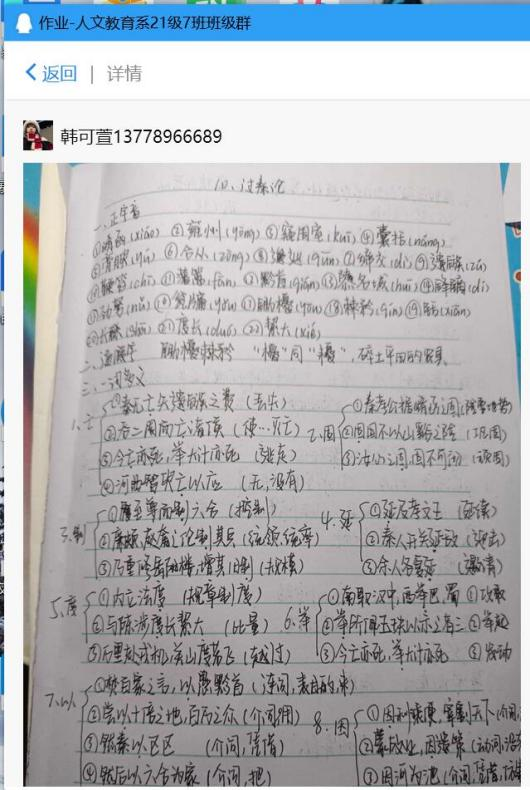 作业-人文教育系21级7班班级群
返回 | 详情
韩可萱13778966689
10、过秦论
一、正字音
①崤函(xiáo) ②雍州(yōng) ③窥周室(kuī) ④囊括(náng)
⑥合从(zòng) ⑨遗镞(zú)
⑩鞭笞(chī) ⑪蕃篱(fān) ⑫黔首(qián) ⑬隳名城(huī)
⑮劲弩(nǔ) ⑰锄櫌(yōu) ⑱棘矜(qín) ⑲铦(xiān)
㉑度长(duó) ㉒絜大(xié)
二、通假字 锄櫌棘矜 “櫌”同“耰”，碎土平田的农具
三、一词多义
1、亡 ①秦无亡矢遗镞之费(丢失)
②吞二周而亡诸侯(使…灭亡)
③今亡亦死，举大计亦死(逃走)
④河曲智叟亡以应(无，没有)
2、固 ①秦孝公据崤函之固
②固国不以山溪之险(巩固)
③汝心之固，固不可彻(顽固)
3、制 ①履至尊而制六合(控制)
②廉颇、赵奢之伦制其兵(统领，统率)
③乃重修岳阳楼，增其旧制(规模)
4、延 ①延及孝文王(延续)
②秦人开关延敌
③余人各复延(邀请)
5、度 ①内立法度(规章制度)
②与陈涉度长絜大(比量)
③乃重赴戎机，关山度若飞(越过)
6、举 ①南取汉中，西举巴、蜀 ①攻取
②举所佩玉玦以示之者三 ②举起
③今亡亦死，举大计亦死 ③发动
7、以 ①焚百家之言，以愚黔首(连词，表目的，来)
②尝以十倍之地，百万之众(介词，用)
③然秦以区区(介词，凭借)
④然后以六合为家(介词，把)
8、因 ①因利乘便，宰割天下(介词
②蒙故业，因遗策(动词，沿
③因河为池(介词，凭借